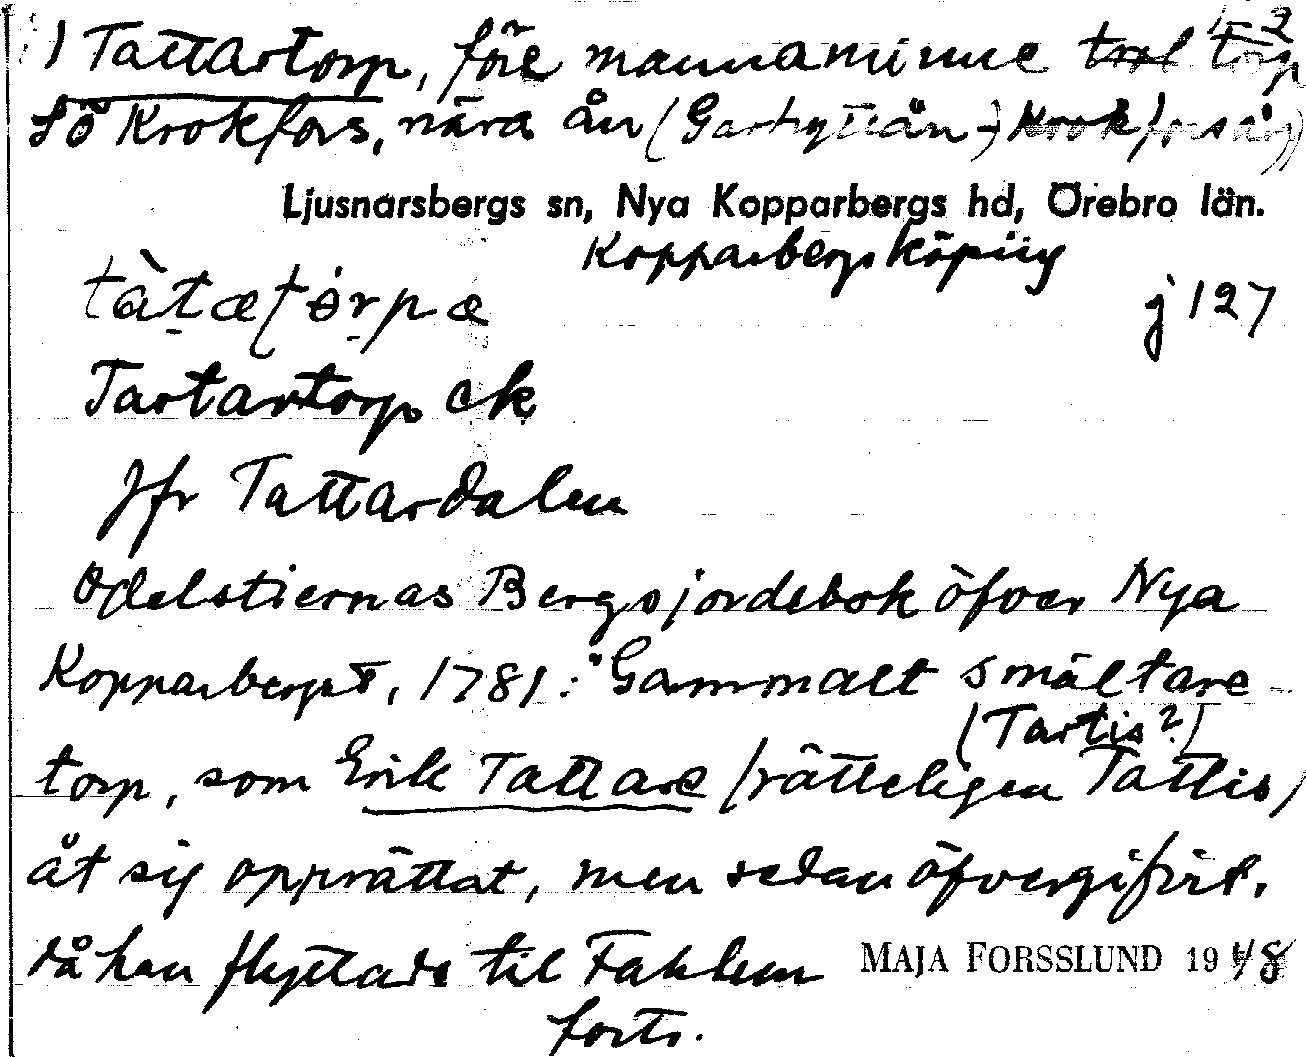 1 Tattartorp, före mannaminne torp
sö Krokfors, nära ån (Garhyttån-) Krokforsån)
Ljusnarsbergs sn, Nya Kopparbergs hd, Örebro län.
Kopparbergs köping
j 127
Tartartorp ek
Jfr Tattardalen
Odelstiernas Bergsjordebok öfver Nya
Kopparberget, 1781: "Gammalt smältare
(Tartis?)
torp, som Erik Tattare (rätteligen Tattis)
åt sig opprättat, men sedan öfvergifvit,
då han flyttade til Fahlun
MAJA FORSSLUND 1948
forts.